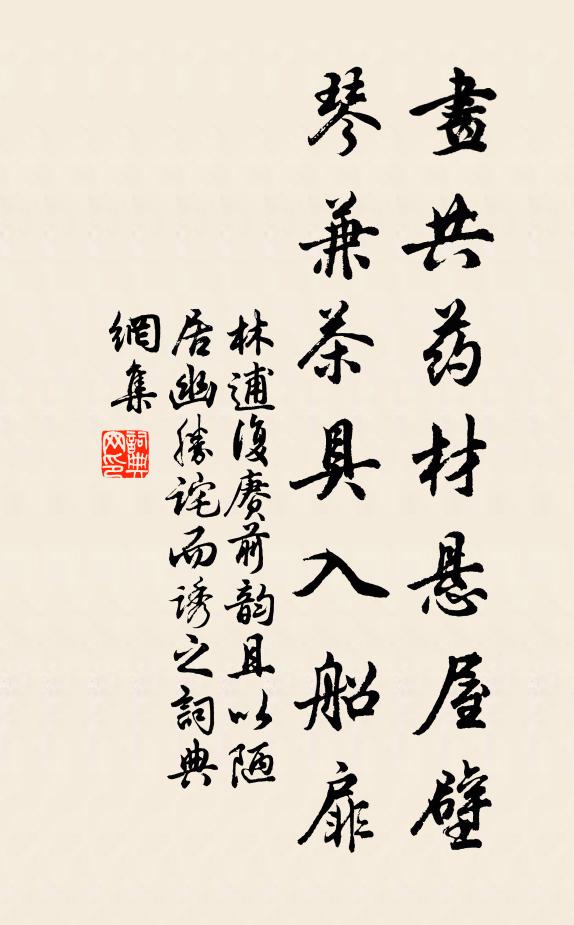 畫共药材悬屋壁
琴兼茶具入船扉
林逋復赓前韵且以陋
居幽勝詫而诱之詞典
網集
詞典
网印